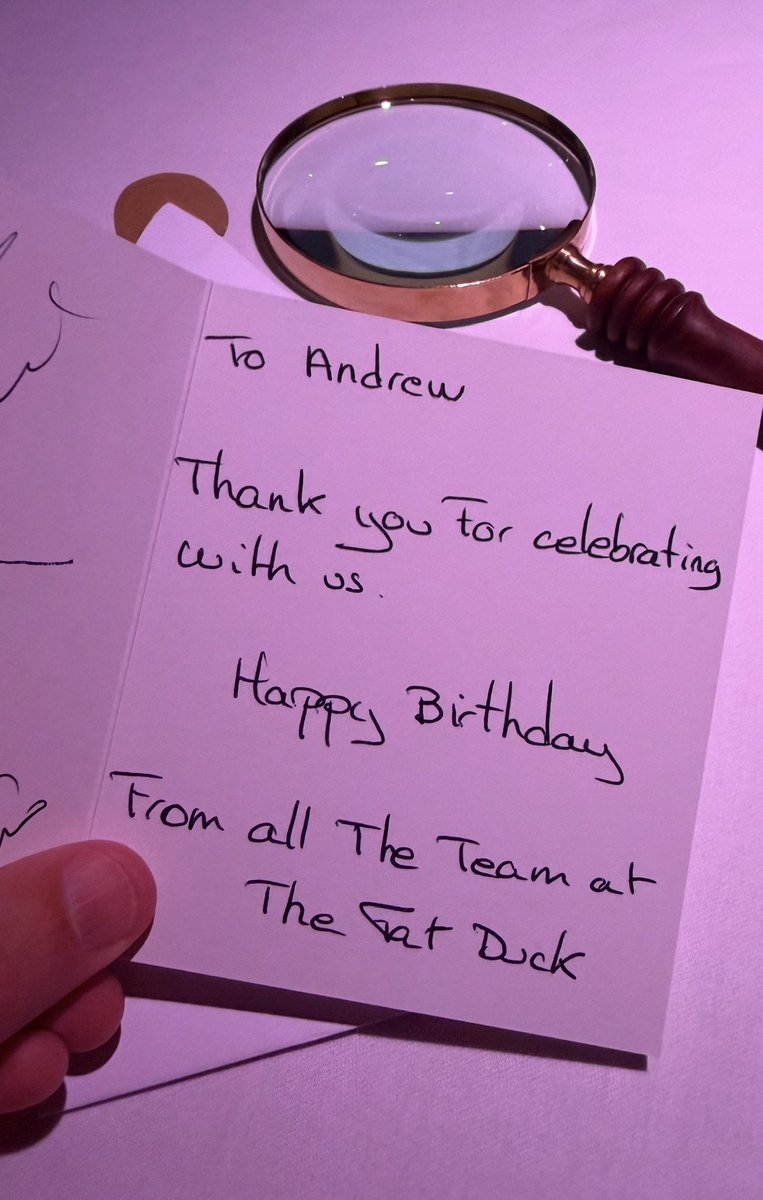 To Andrew
Thank you for celebrating
with us.
Happy Birthday
From all The Team at
The Fat Duck